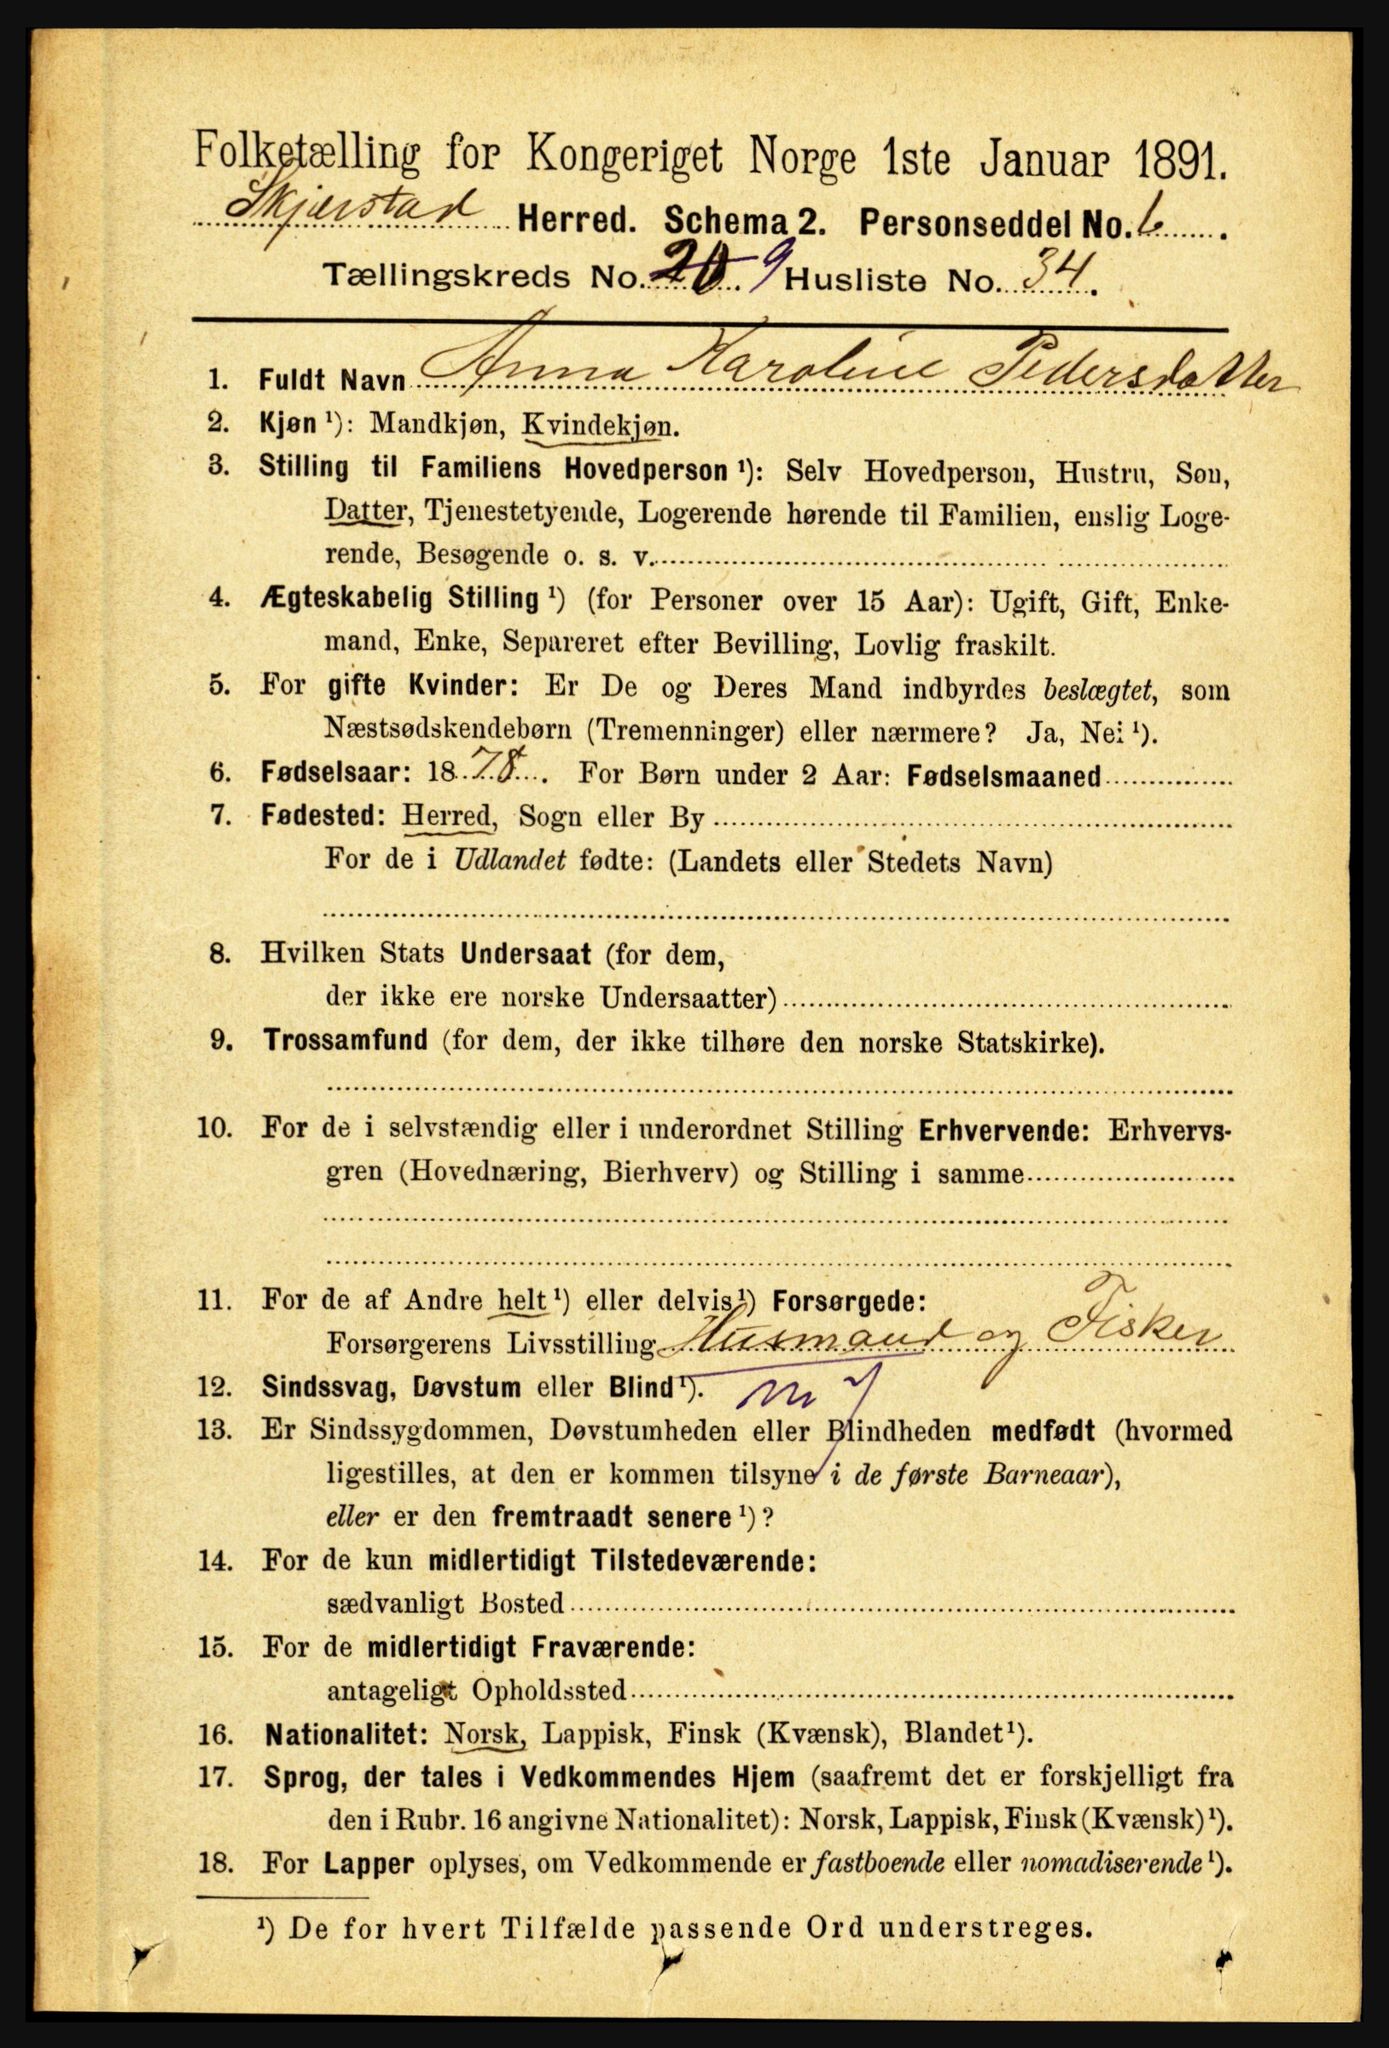 Folketælling for Kongeriget Norge 1ste Januar 1891.
Skjerstad Herred. Schema 2. Personseddel No. 6.
Tællingskreds No. 20 9 Husliste No. 34.
1. Fuldt Navn Anna Karoline Pedersdatter
2. Kjøn ¹): Mandkjøn, Kvindekjøn.
3. Stilling til Familiens Hovedperson ¹): Selv Hovedperson, Hustru, Søn,
Datter, Tjenestetyende, Logerende hørende til Familien, enslig Loge-
rende, Besøgende o. s. v.
4. Ægteskabelig Stilling ¹) (for Personer over 15 Aar): Ugift, Gift, Enke-
mand, Enke, Separeret efter Bevilling, Lovlig fraskilt.
5. For gifte Kvinder: Er De og Deres Mand indbyrdes beslægtet, som
Næstsødskendebørn (Tremenninger) eller nærmere? Ja, Nei ¹).
6. Fødselsaar: 1878. For Børn under 2 Aar: Fødselsmaaned
7. Fødested: Herred, Sogn eller By
For de i Udlandet fødte: (Landets eller Stedets Navn)
8. Hvilken Stats Undersaat (for dem,
der ikke ere norske Undersaatter)
9. Trossamfund (for dem, der ikke tilhøre den norske Statskirke).
10. For de i selvstændig eller i underordnet Stilling Erhvervende: Erhvervs-
gren (Hovednæring, Bierhverv) og Stilling i samme
11. For de af Andre helt ¹) eller delvis ¹) Forsørgede:
Forsørgerens Livsstilling Husmand og Fisker
12. Sindssvag, Døvstum eller Blind ¹).
13. Er Sindssygdommen, Døvstumheden eller Blindheden medfødt (hvormed
ligestilles, at den er kommen tilsyne i de første Barneaar),
eller er den fremtraadt senere ¹)?
14. For de kun midlertidigt Tilstedeværende:
sædvanligt Bosted
15. For de midlertidigt Fraværende:
antageligt Opholdssted
16. Nationalitet: Norsk, Lappisk, Finsk (Kvænsk), Blandet ¹).
17. Sprog, der tales i Vedkommendes Hjem (saafremt det er forskjelligt fra
den i Rubr. 16 angivne Nationalitet): Norsk, Lappisk, Finsk (Kvænsk) ¹).
18. For Lapper oplyses, om Vedkommende er fastboende eller nomadiserende ¹).
¹) De for hvert Tilfælde passende Ord understreges.